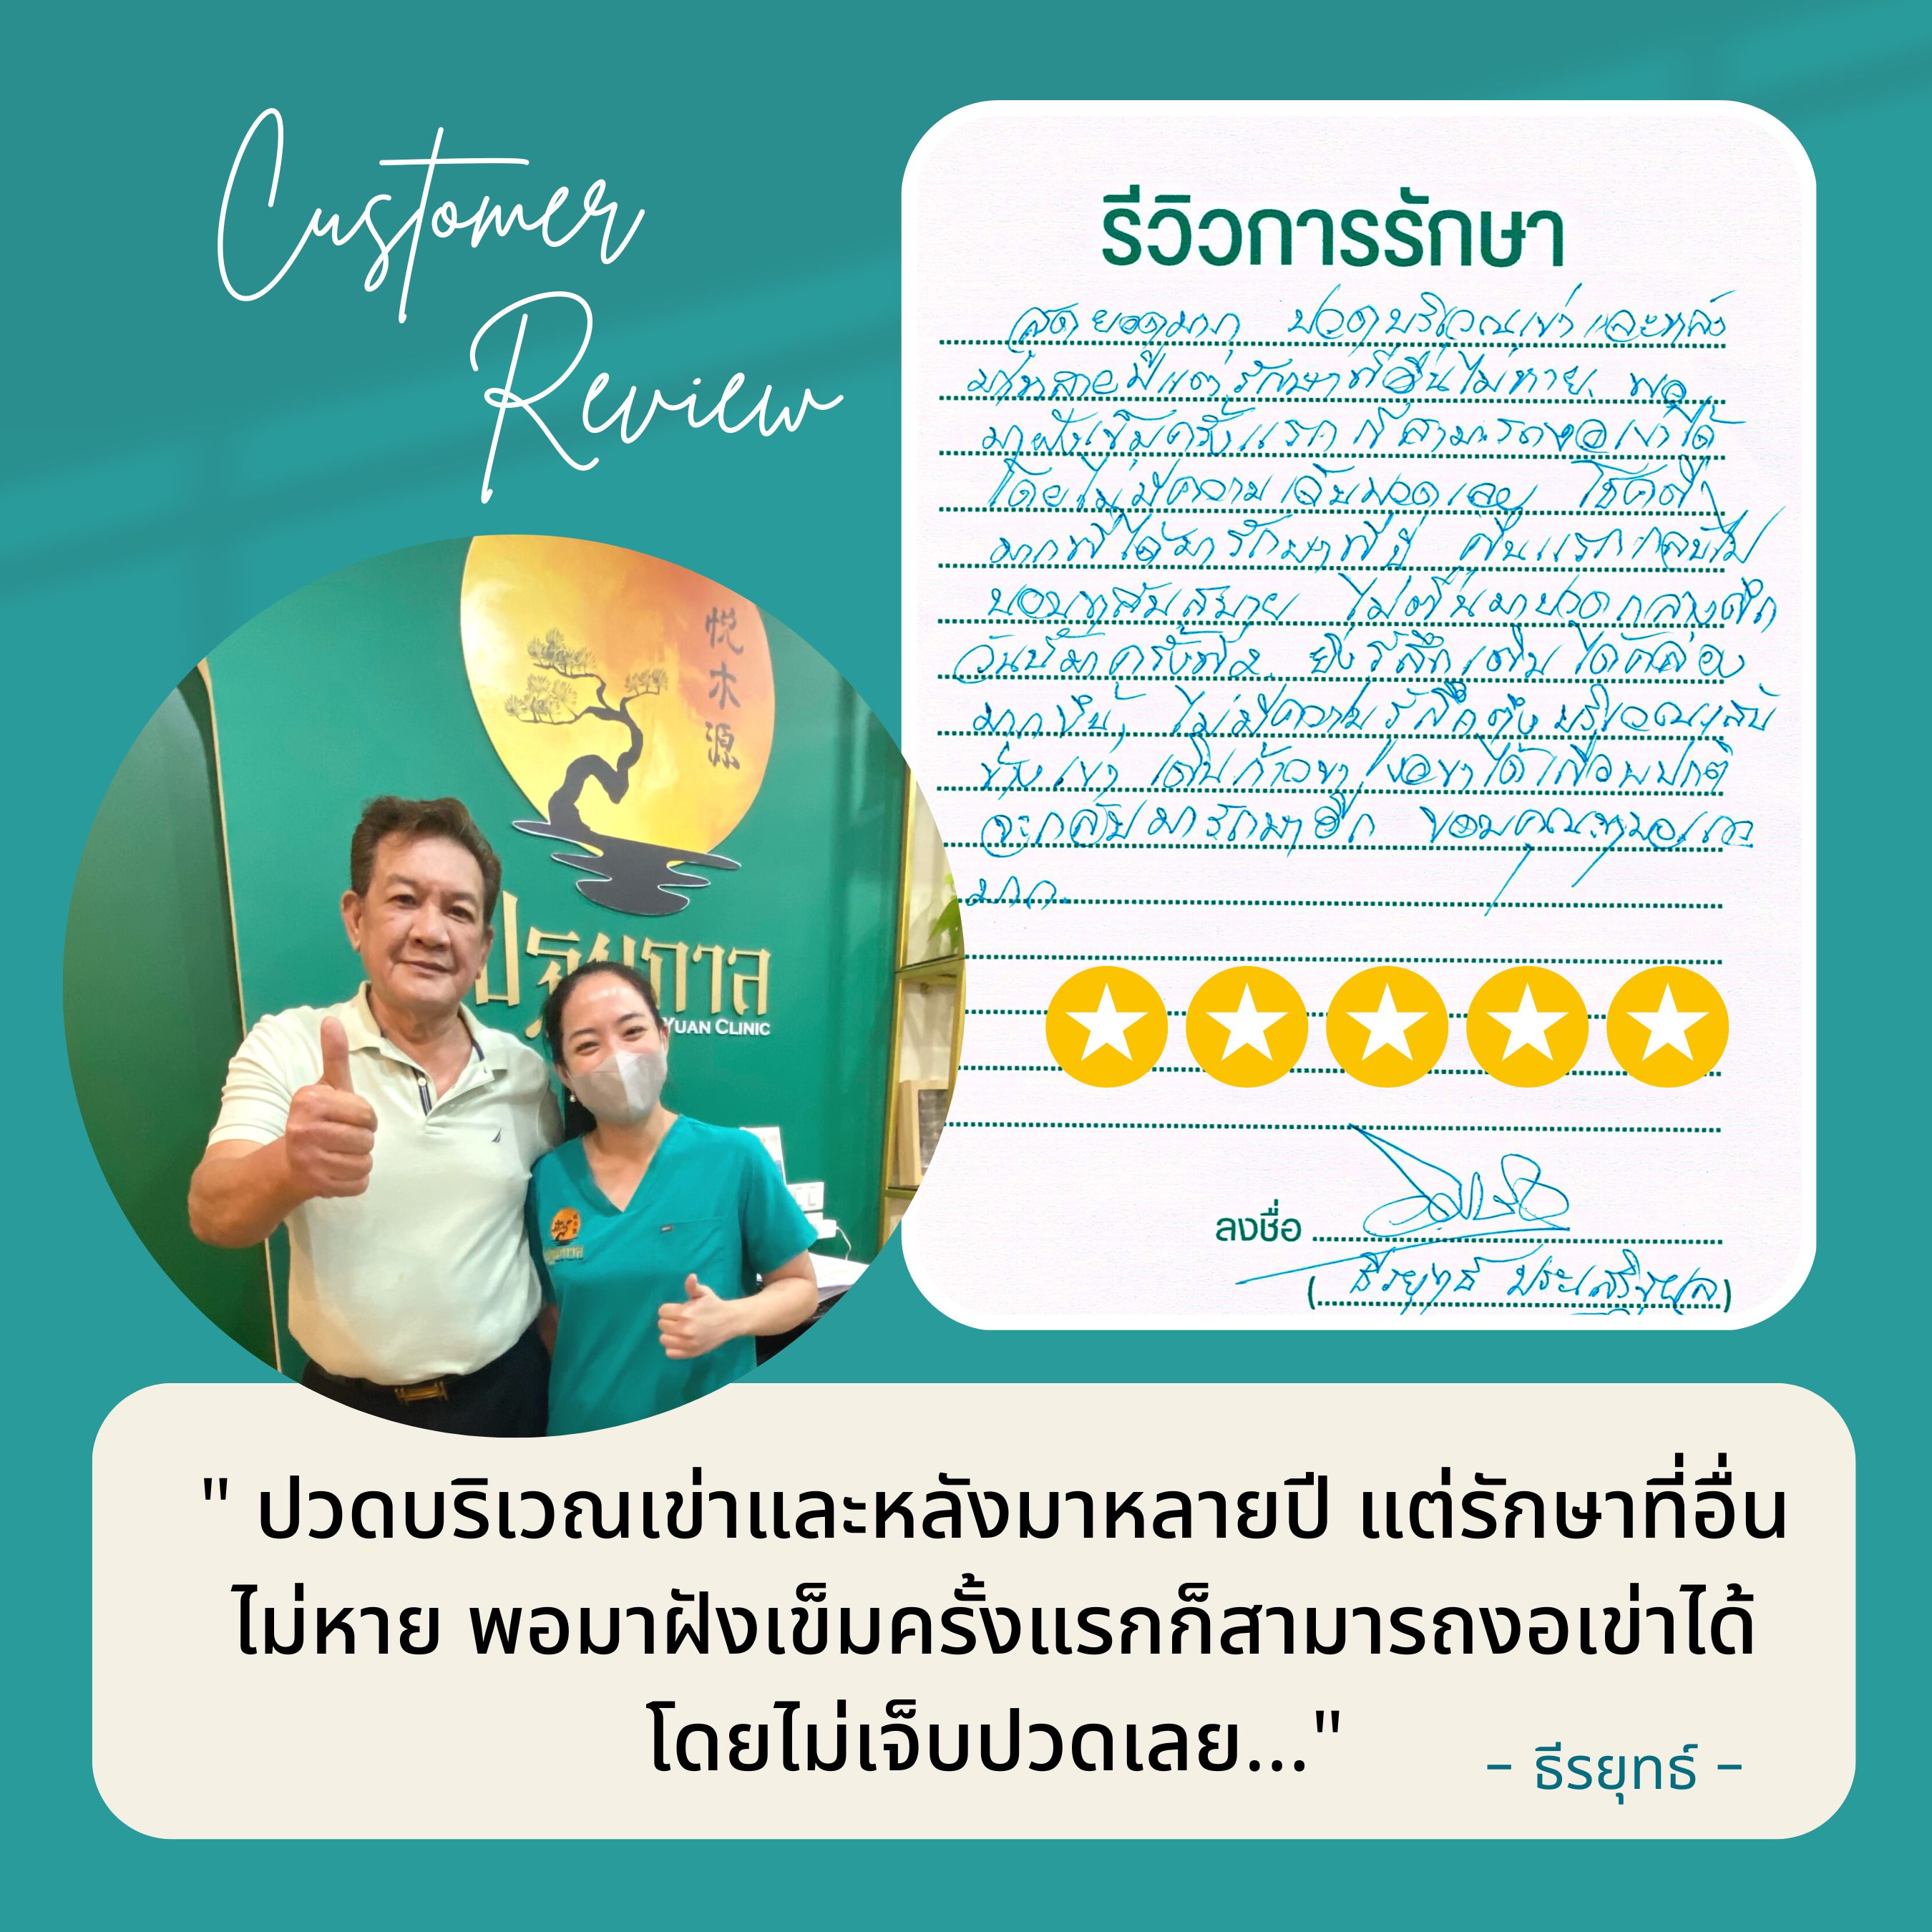 Customer
Review
รีวิวการรักษา
สุดยอดมาก ปวดบริเวณเข่าและหลัง
มาหลายปีแต่รักษาที่อื่นไม่หาย พอ
มาฝังเข็มครั้งแรกก็สามารถงอเข่าได้
โดยไม่มีความเจ็บปวดเลย โชคดี
มากที่ได้มารักษาที่นี่ คืนแรกกลับไป
นอนหลับสบาย ไม่ตื่นมาปวดกลางดึก
วันนี้มาครั้งที่ 2 ยิ่งรู้สึกเดินได้คล่อง
มากขึ้น ไม่มีความรู้สึกตึงบริเวณเส้น
ข้างเข่า เดินก้าวขา งอขาได้เกือบปกติ
จะกลับมารักษาอีก ขอบคุณหมอแวว
มาก
ลงชื่อ
(ธีรยุทธ์)
悦木源
ปฐมกาล
YUAN CLINIC
" ปวดบริเวณเข่าและหลังมาหลายปี แต่รักษาที่อื่น
ไม่หาย พอมาฝังเข็มครั้งแรกก็สามารถงอเข่าได้
โดยไม่เจ็บปวดเลย..."
– ธีรยุทธ์ –